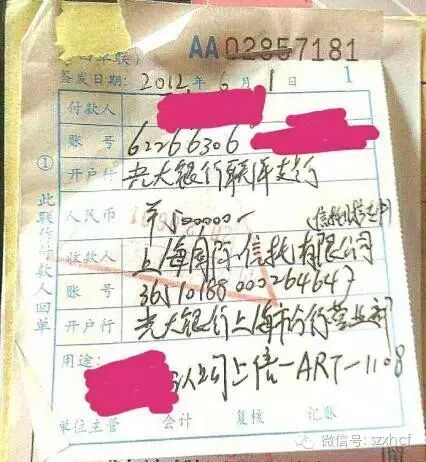 AA02857181
签发日期：2012年 6月 1日 1
付款人
账 号 62266306
开户行 光大银行联洋支行
人民币
收款人 上海国际信托有限公司
账 号 36510188000264647
开户行 光大银行上海市分行营业部
用途： 认购上信-ART-1108
单位主管 会计 复核 记账
①此联作付款人回单
微信号: szxhcf